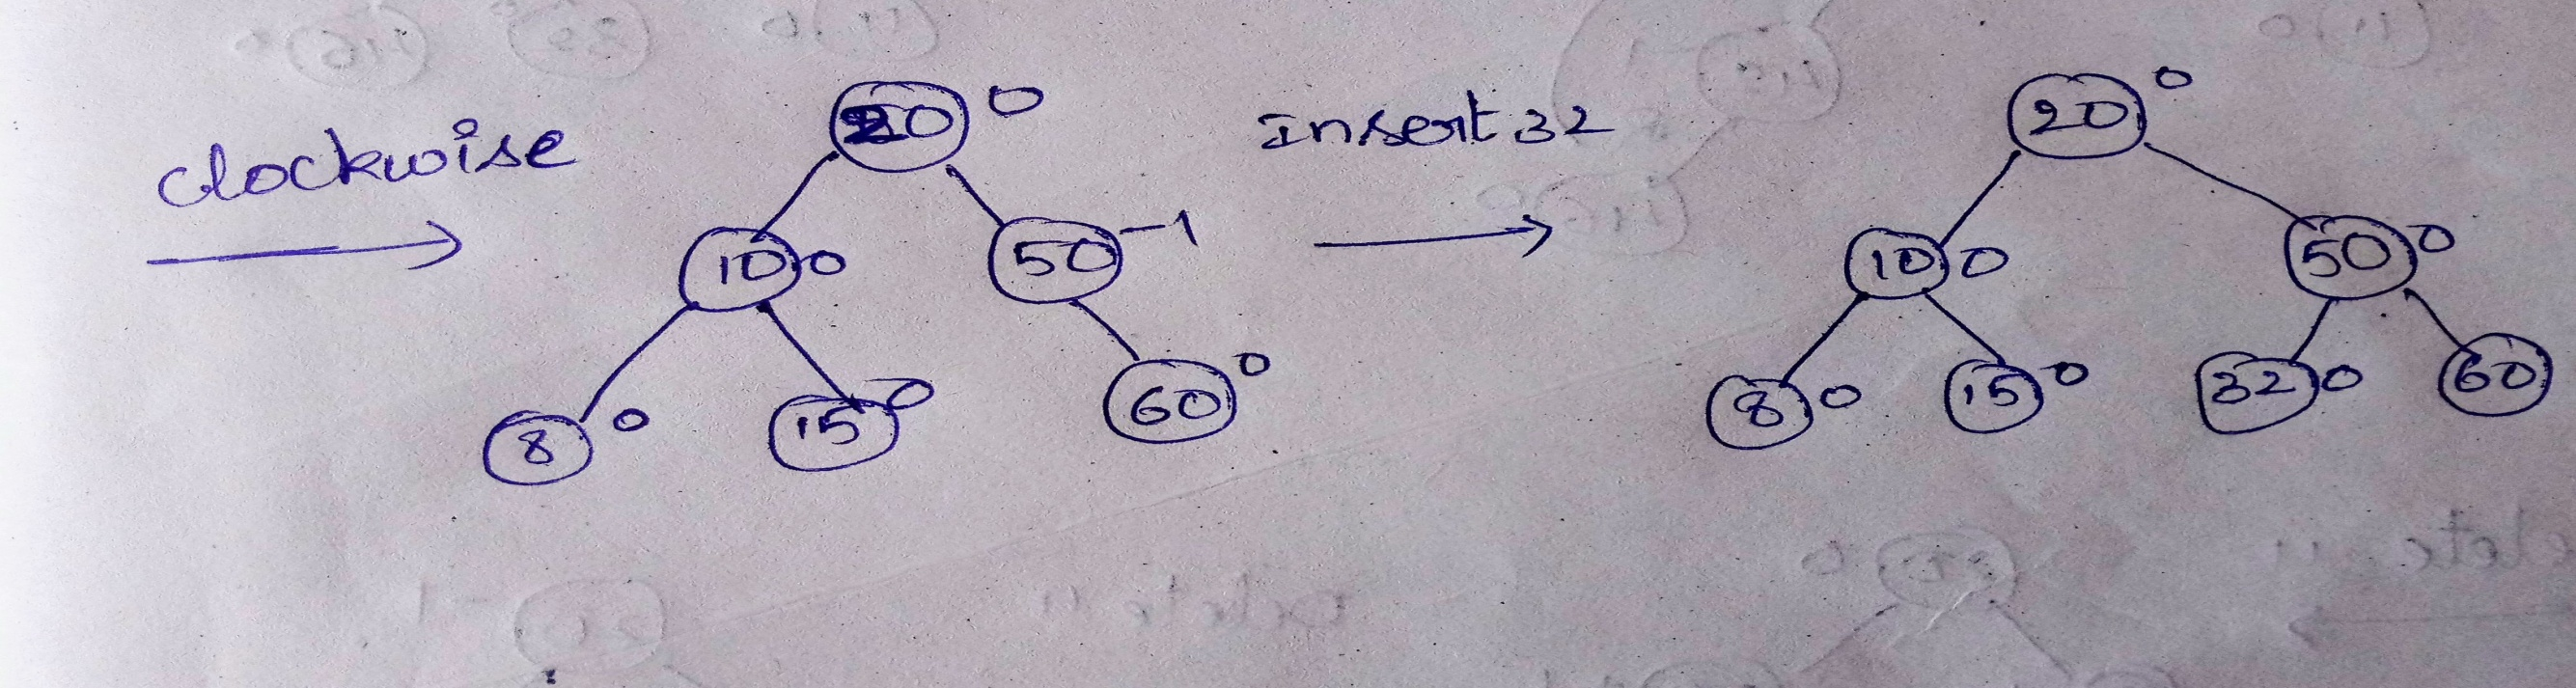 clockwise
20 0
10 0
50 -1
8 0
15 0
60 0
Insert 32
20 0
10 0
50 0
8 0
15 0
32 0
60